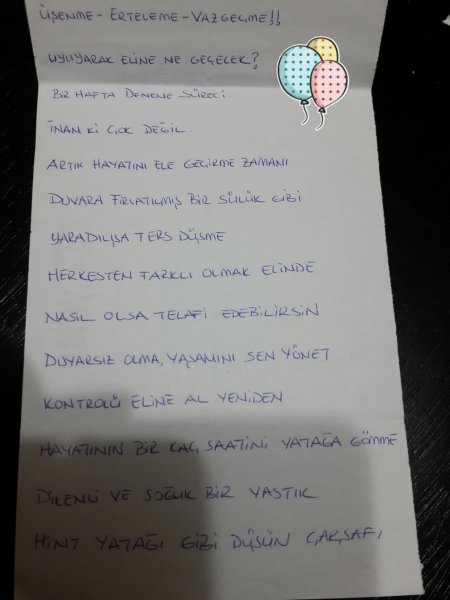 ÜŞENME - ERTELEME - VAZGEÇME!!
UYUYARAK ELİNE NE GEÇECEK?
BİR HAFTA DENEME SÜRECİ.
İNAN Kİ ÇOK DEĞİL.
ARTIK HAYATINI ELE GEÇİRME ZAMANI
DUVARA FIRLATILMIŞ BİR SÜLÜK GİBİ
YARADILIŞA TERS DÜŞME
HERKESTEN FARKLI OLMAK ELİNDE
NASIL OLSA TELAFİ EDEBİLİRSİN
DUYARSIZ OLMA, YAŞAMINI SEN YÖNET
KONTROLÜ ELİNE AL YENİDEN
HAYATININ BİR KAÇ SAATİNİ YATAĞA GÖMME
DİKENLİ VE SOĞUK BİR YASTIK
HİNT YATAĞI GİBİ DÜŞÜN ÇARŞAFI